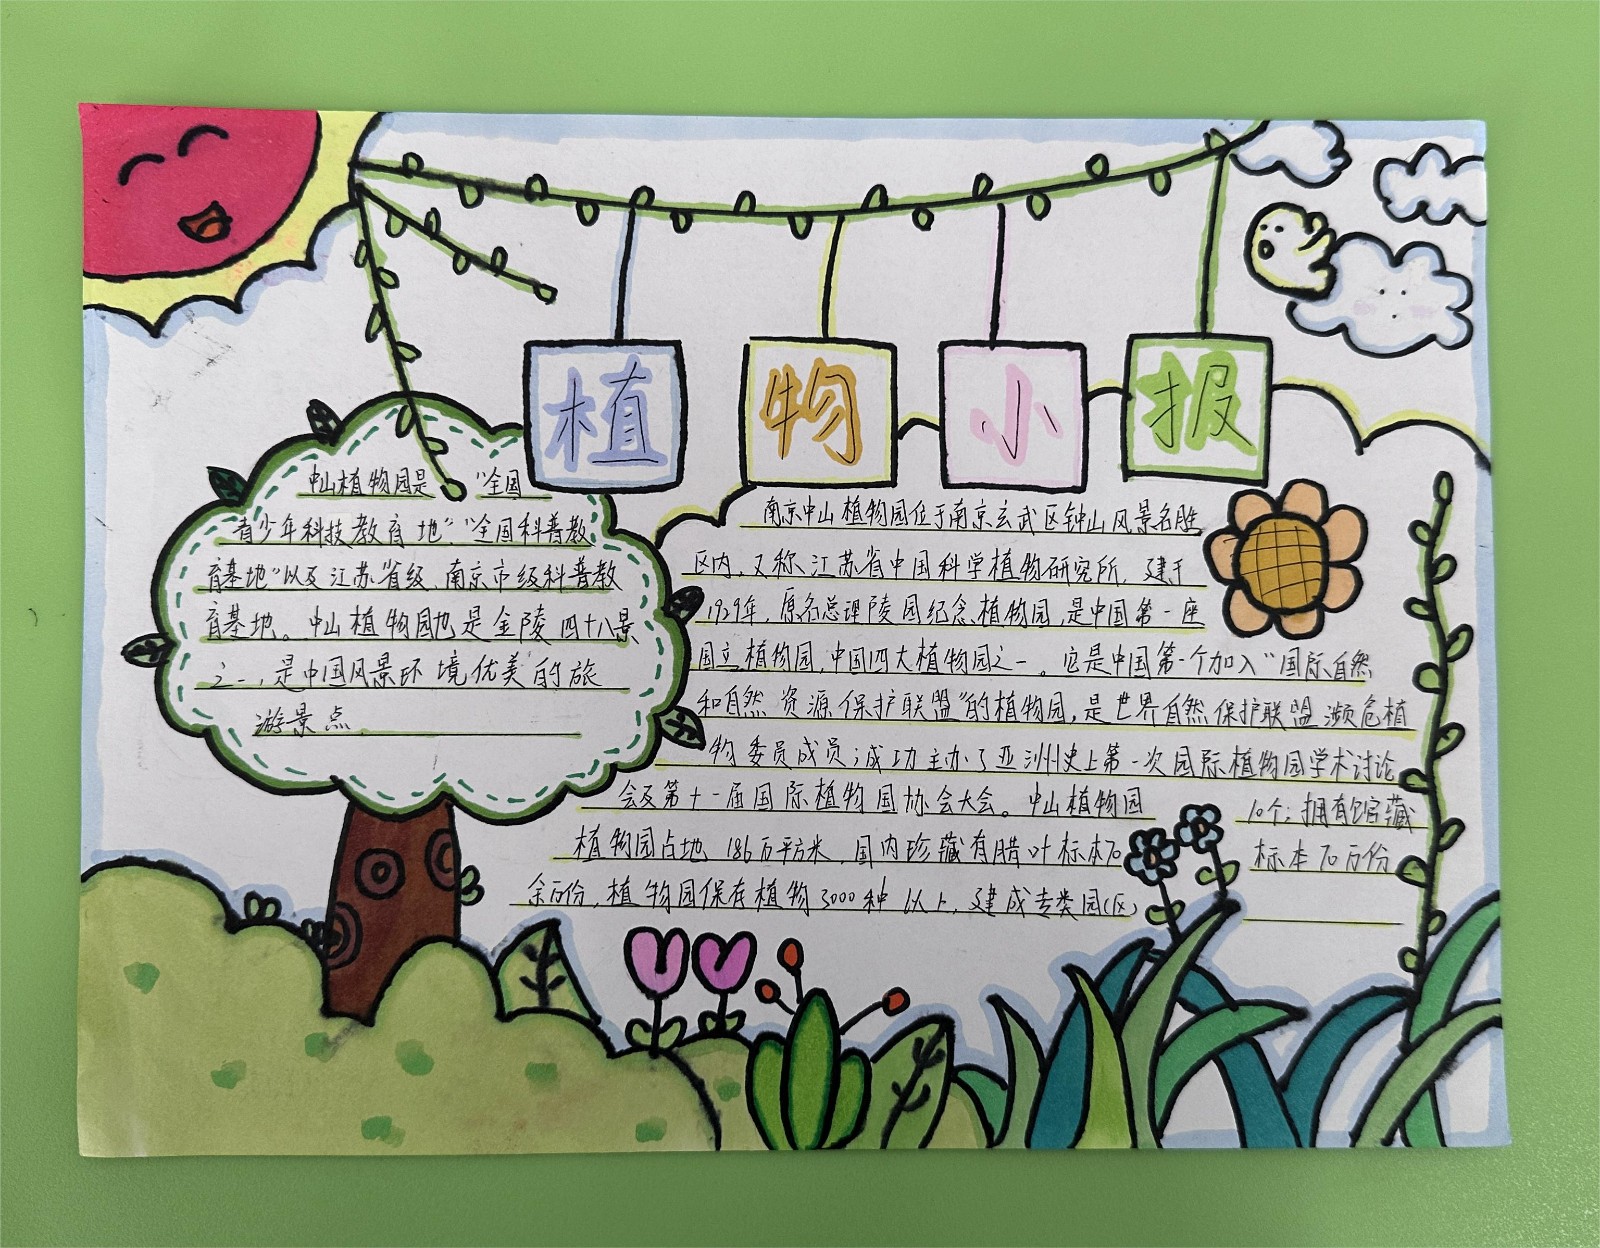 植物小报
中山植物园是 "全国
青少年科技教育 地"、"全国科普教
育基地"以及江苏省级、南京市级科普教
育基地。中山植物园也是金陵四十八景
之一,是中国风景环境优美的旅
游景点
南京中山植物园位于南京玄武区钟山风景名胜
区内,又称江苏省中国科学植物研究所,建于
1929年,原名总理陵园纪念植物园,是中国第一座
国立植物园,中国四大植物园之一。它是中国第一个加入"国际自然
和自然资源保护联盟"的植物园,是世界自然保护联盟濒危植
物委员成员;成功主办了亚洲史上第一次国际植物园学术讨论
会及第十一届国际植物园协会大会。中山植物园
植物园占地186万平方米,国内珍藏有腊叶标本70
余万份,植物园保存植物3000种以上,建成专类园(区)
10个;拥有馆藏
标本70万份